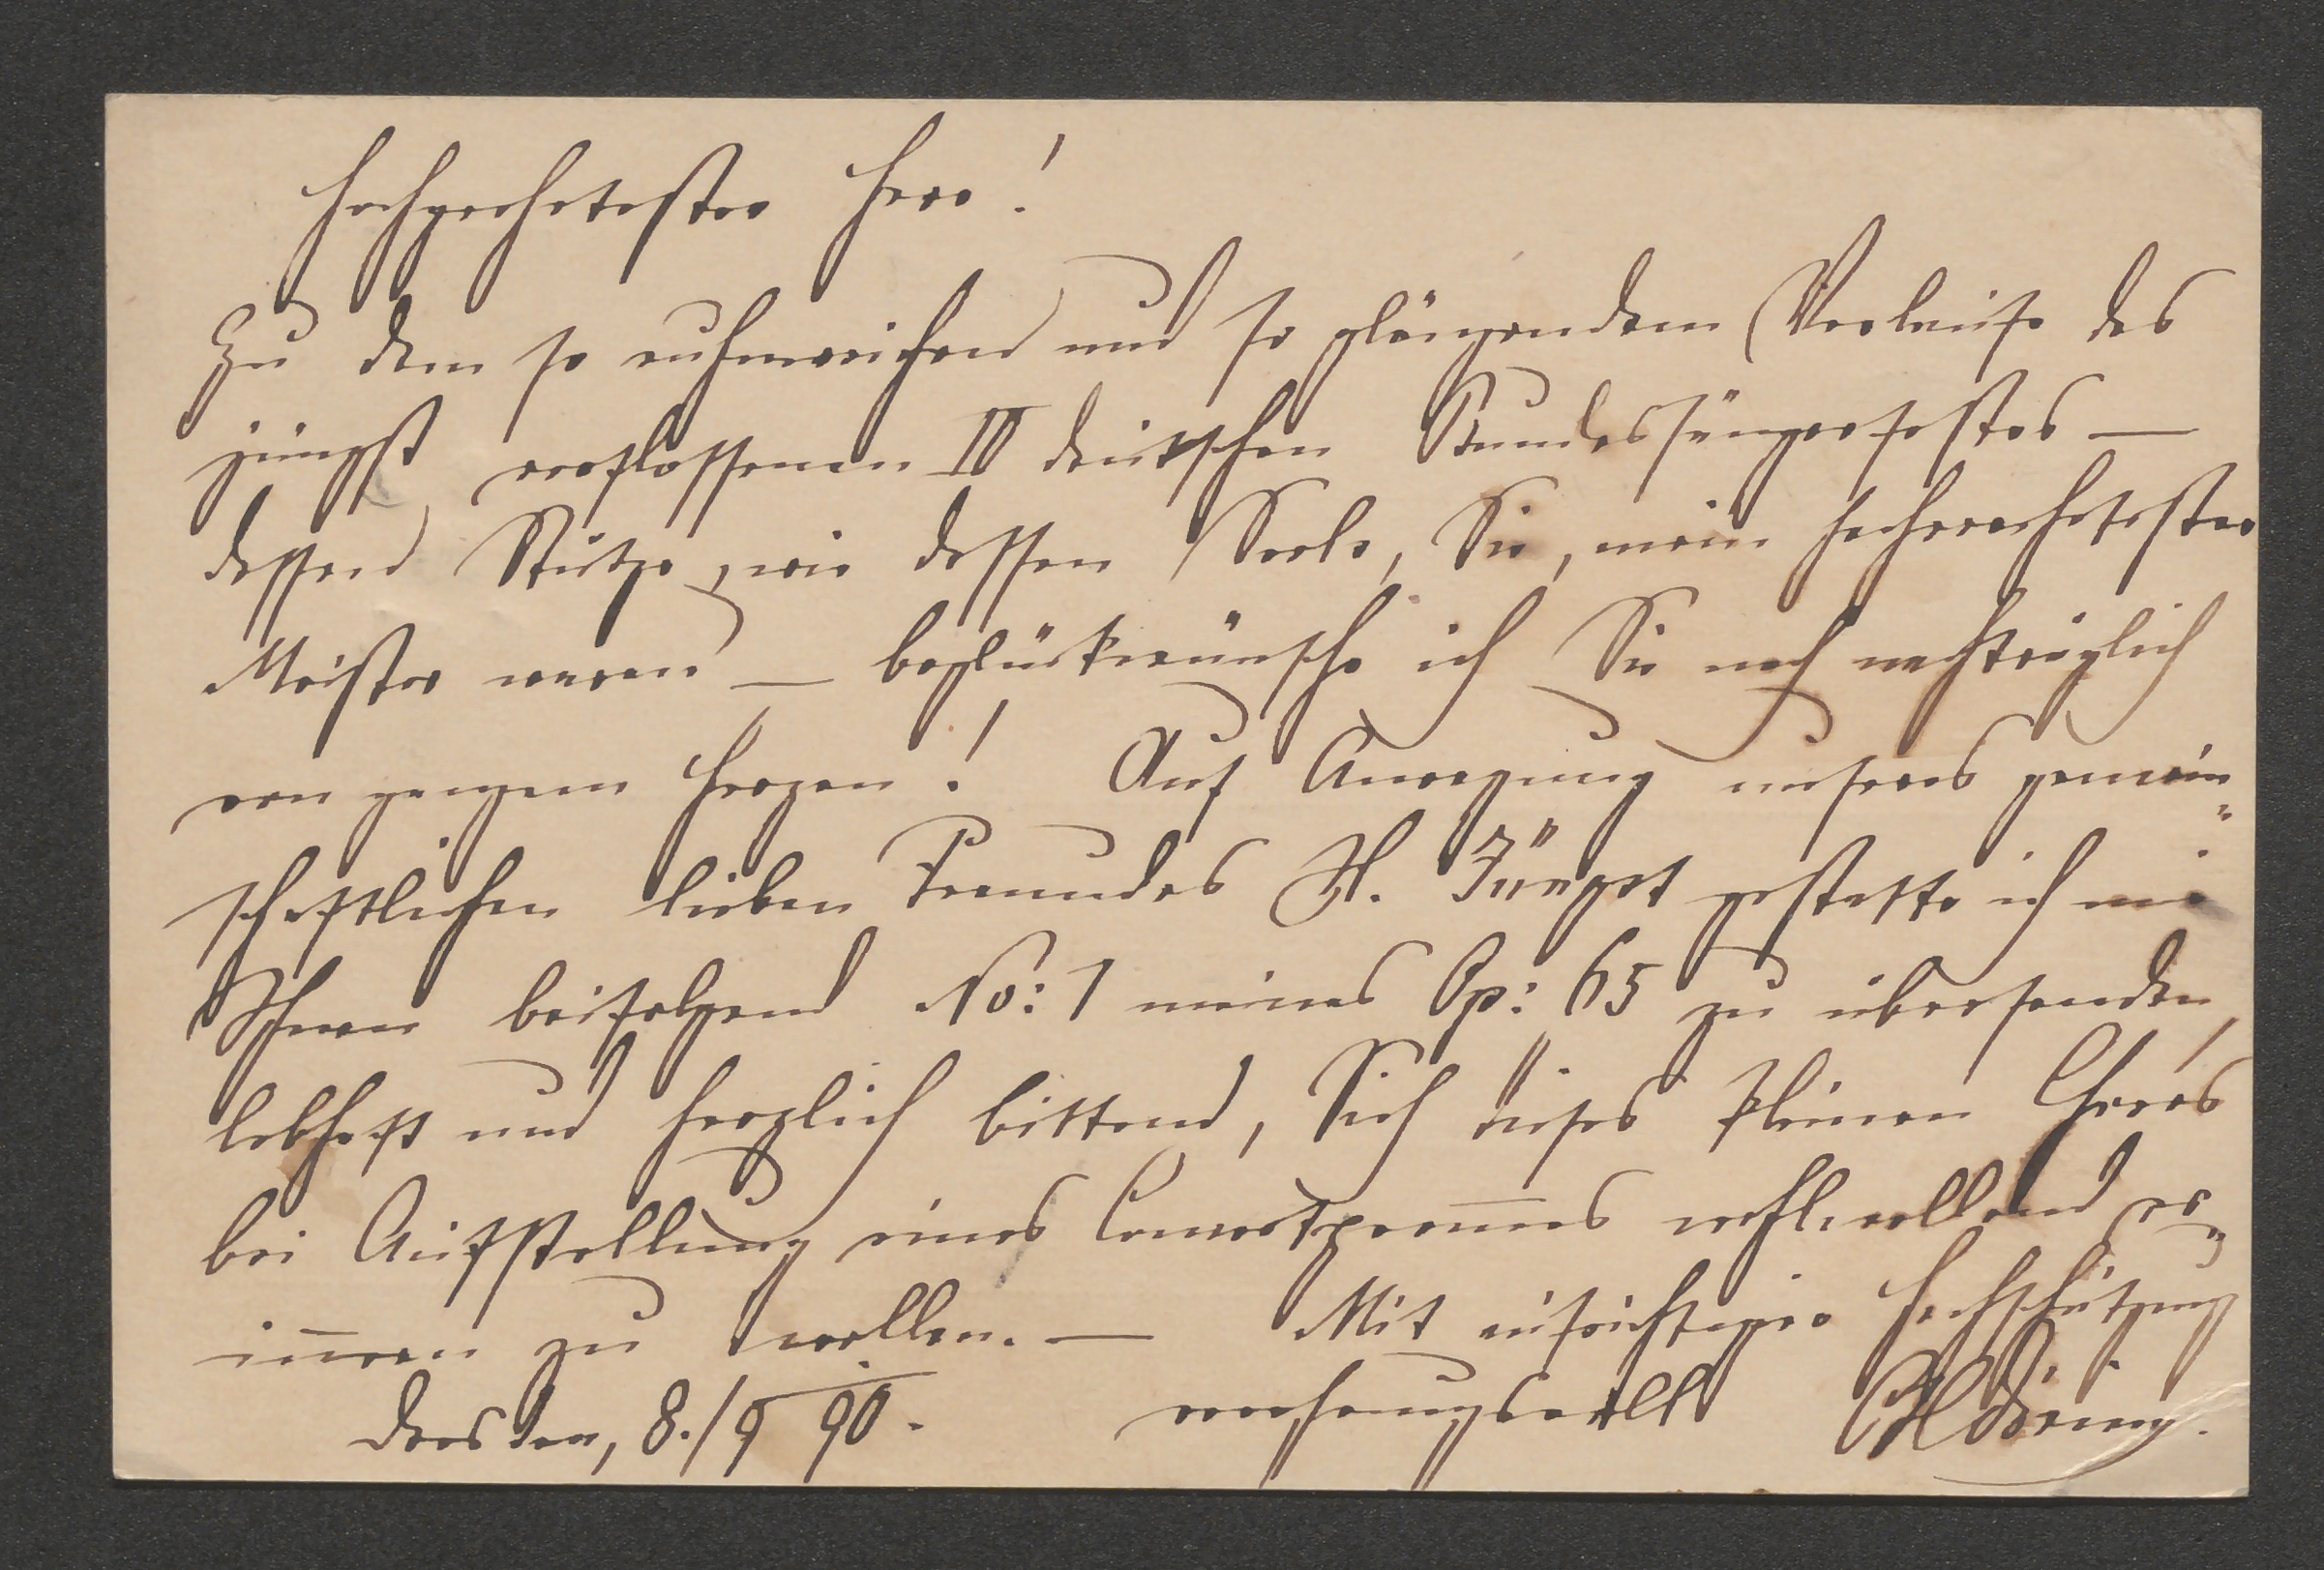 Hochgeehrtester Herr!
Zu dem so ruhmreichen und so glänzendem Verlaufe des
jüngst verflossenen IV deutschen Bundessängerfestes —
dessen Stütze, wie dessen Seele, Sie, mein hochverehrtester
Meister waren — beglückwünsche ich Sie noch nachträglich
von ganzem Herzen! Auf Anregung unseres gemein„
schaftlichen lieben Freundes H. Jüngst gestatte ich mir
Ihnen beifolgend No: 1 meines Op: 65 zu übersenden,
lebhaft und herzlich bittend, Sich dieses kleinen Chores
bei Aufstellung eines Concertprom̅es wohlwollend er„
in̅ern zu wollen. — Mit aufrichtiger Hochschätzung
Dresden, 8./9 90. verehrungsvoll CHDöring.